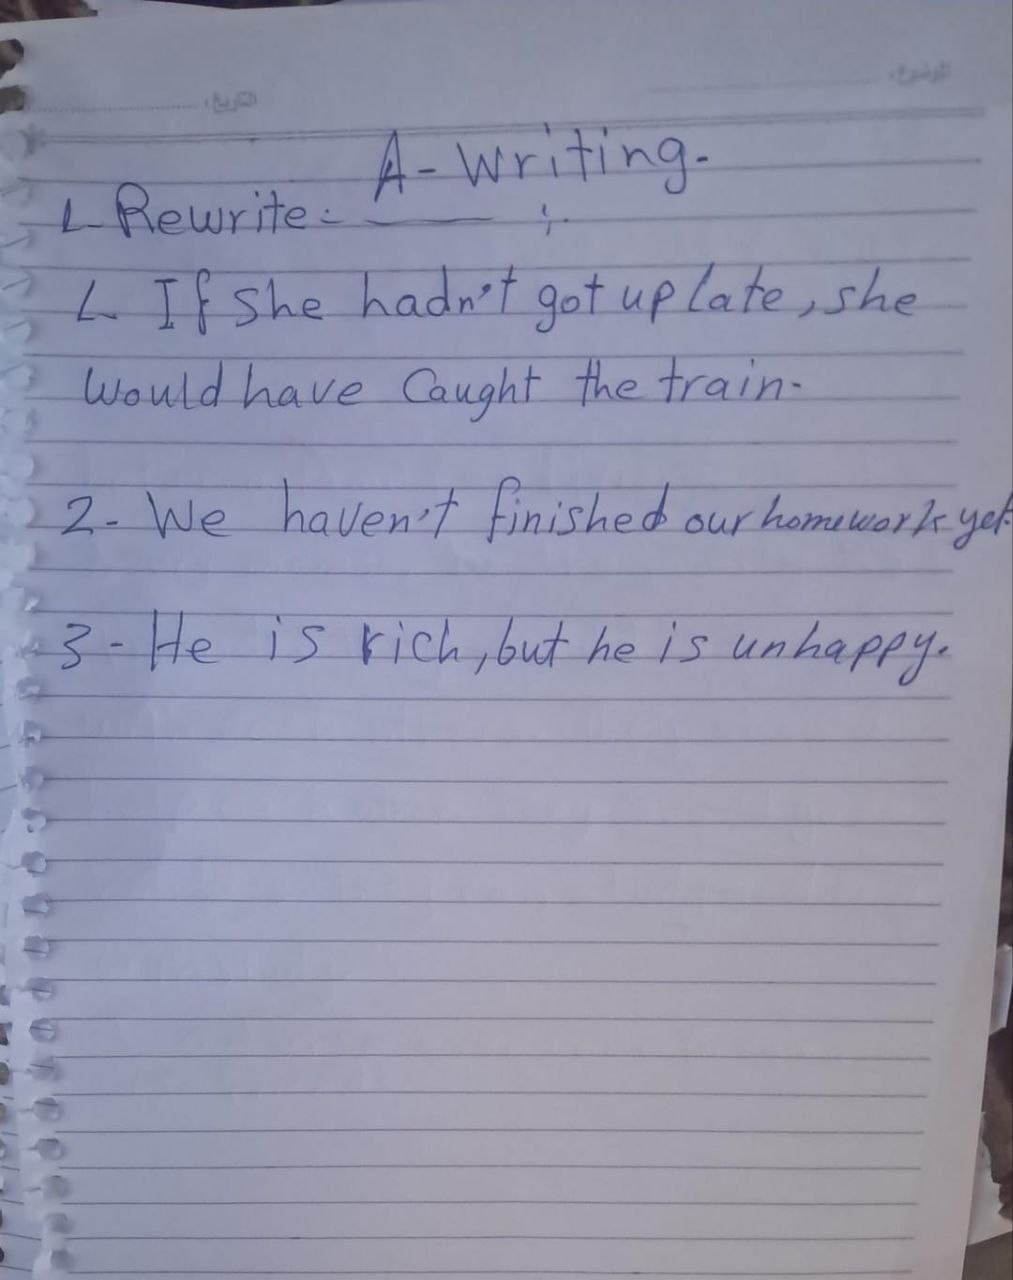 الموضوع:
التاريخ:
A- Writing.
1- Rewrite:- ——— :.
1- If she hadn't got up late, she
would have caught the train.
2- We haven't finished our homework yet.
3- He is rich, but he is unhappy.